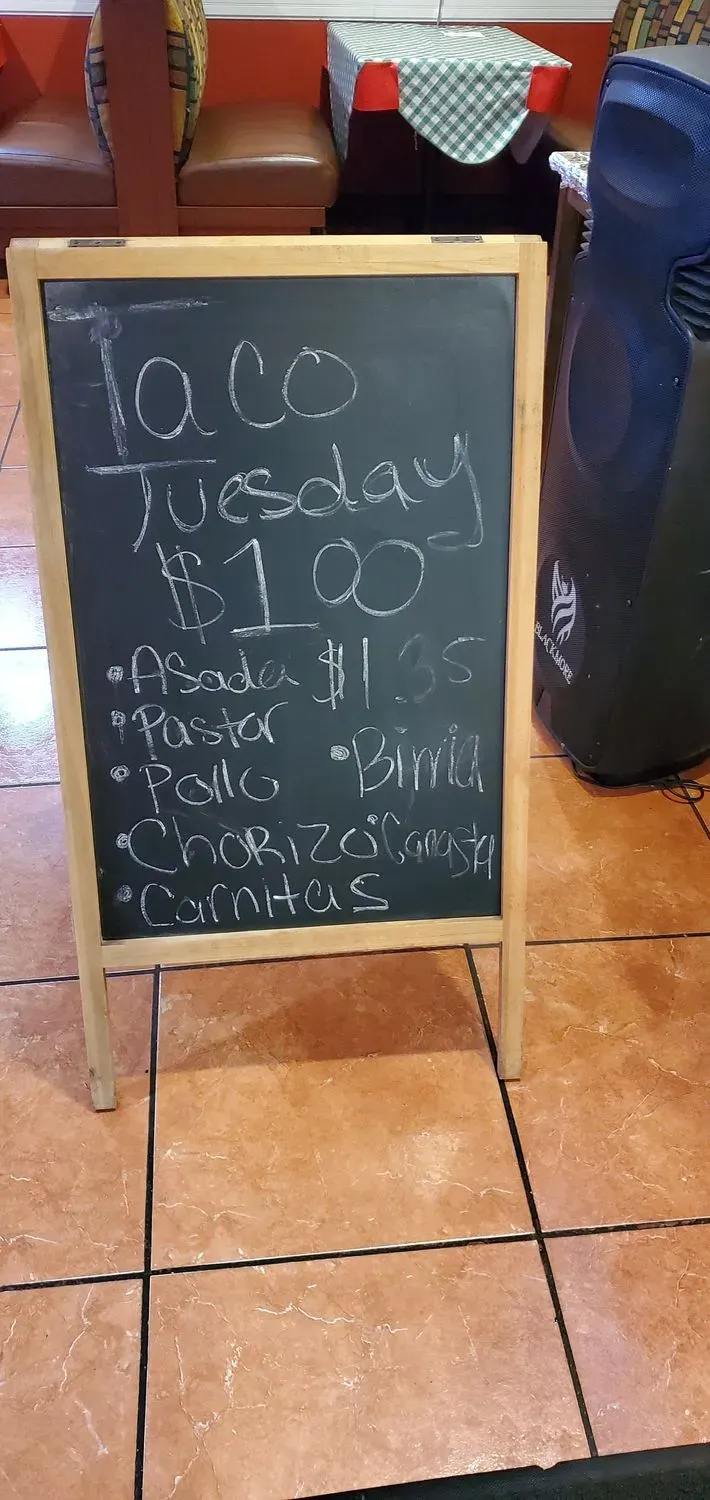 Taco
Tuesday
$1.00
• Asada $1.35
• Pastor
• Pollo • Birria
• Chorizo • Cangsta
• Carnitas
BLACKMORE